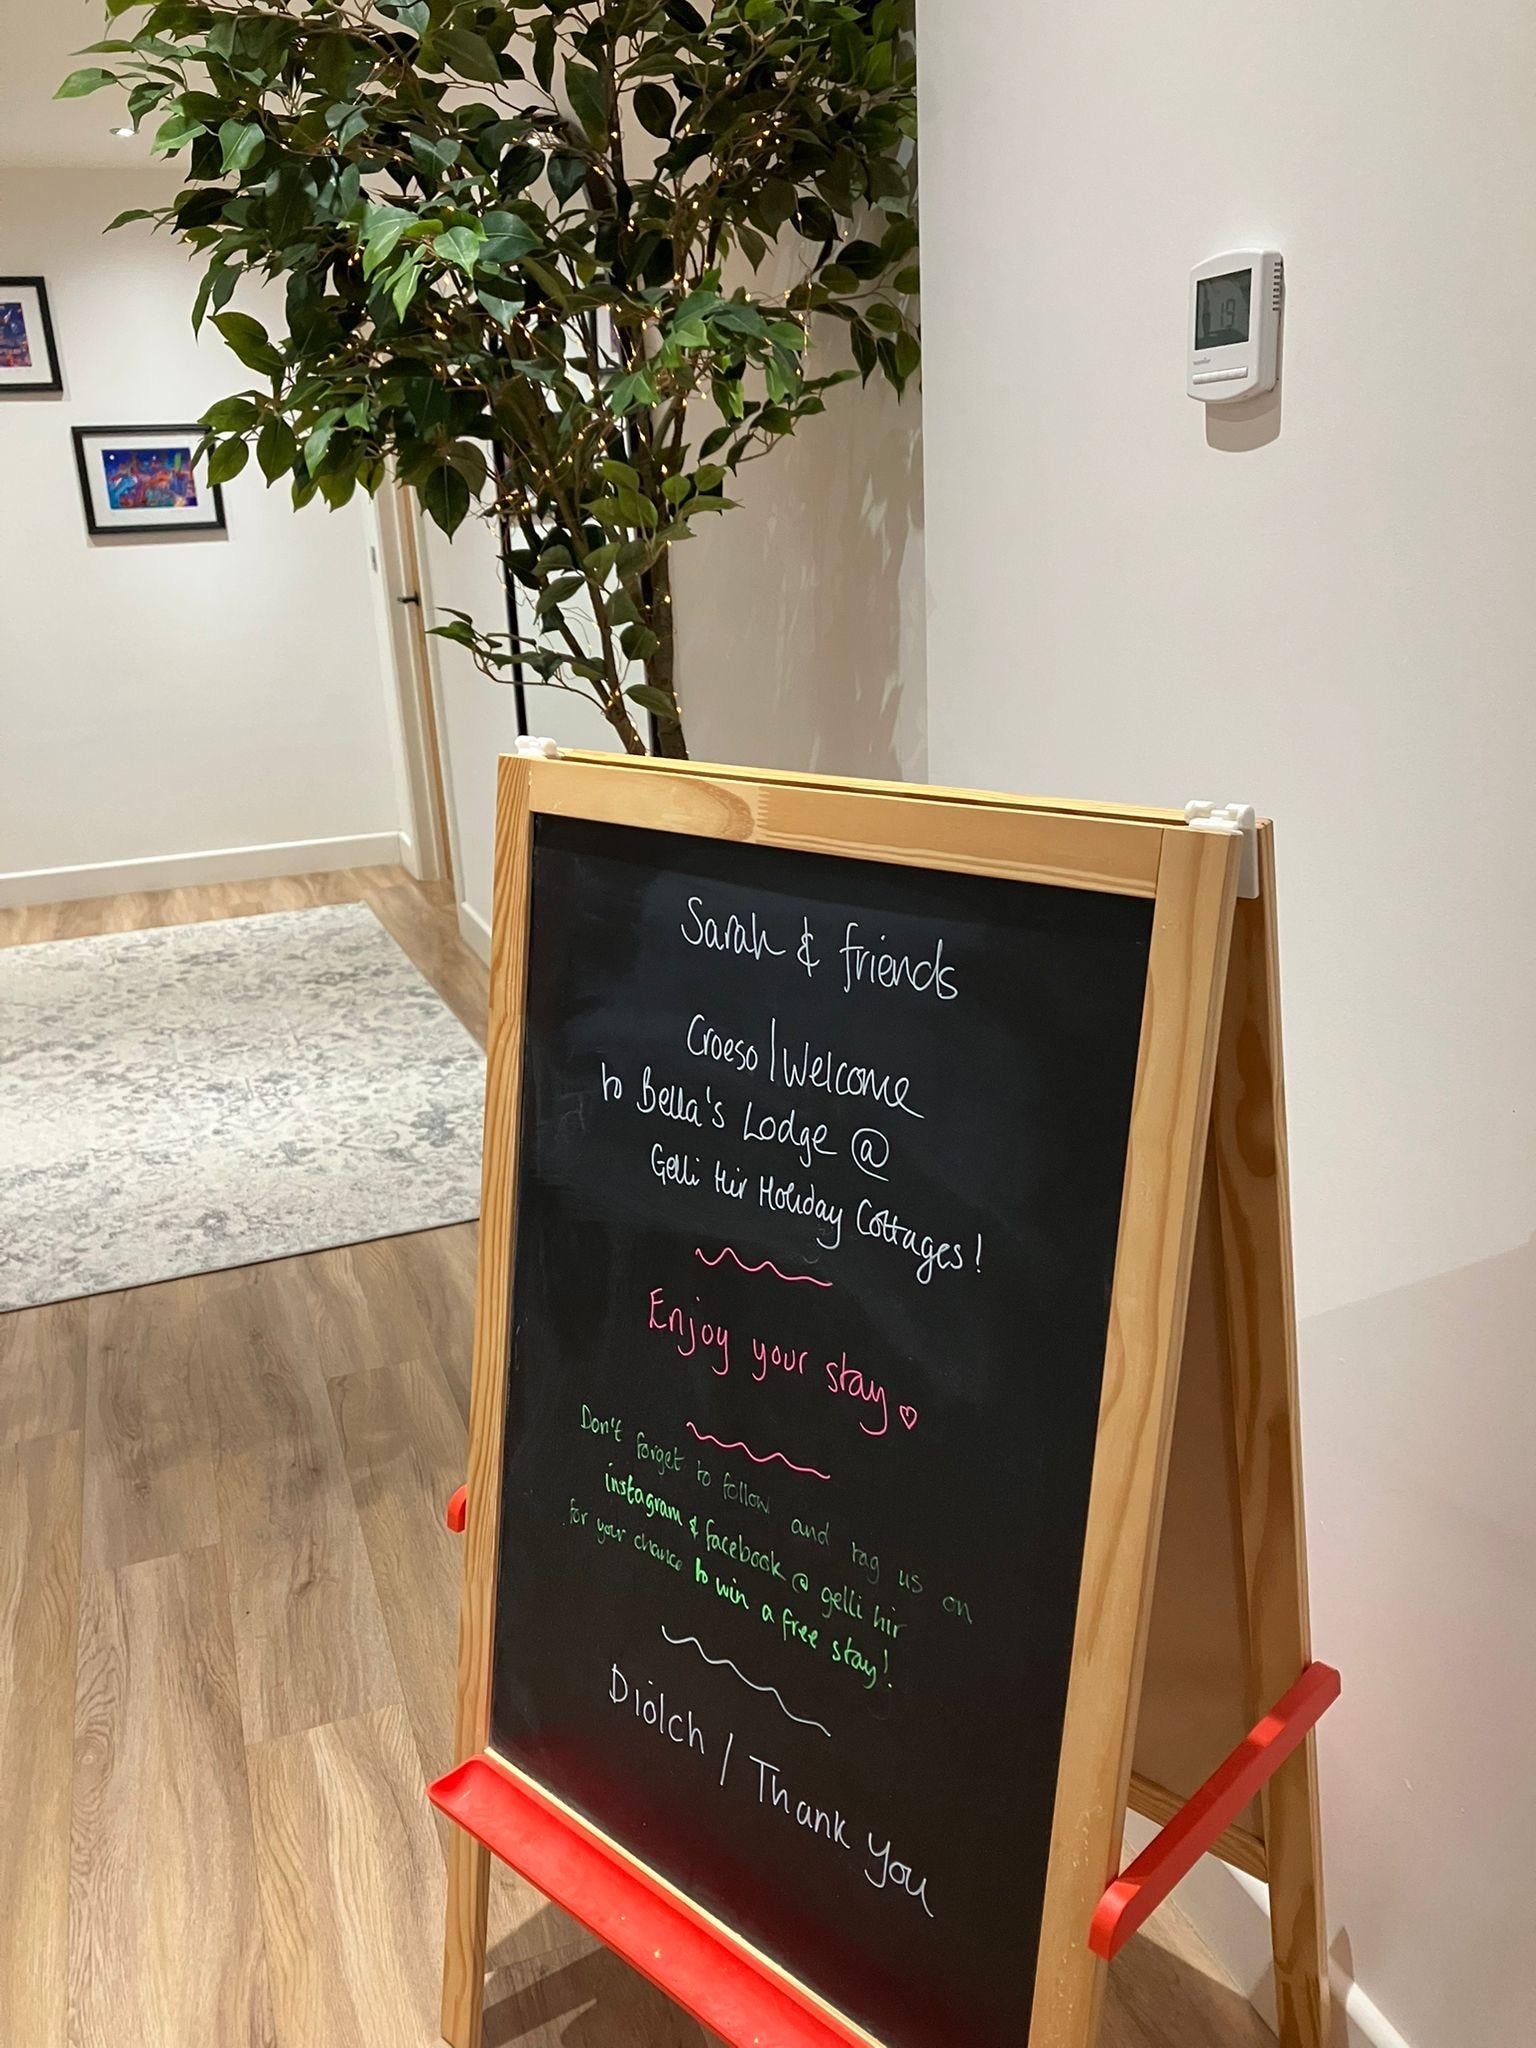 19
Sarah & friends
Croeso | Welcome
to Bella's Lodge @
Gelli Hir Holiday Cottages!
Enjoy your stay ♡
Don't forget to follow and tag us on
instagram & facebook @ gelli hir
for your chance to win a free stay!
Diolch / Thank You